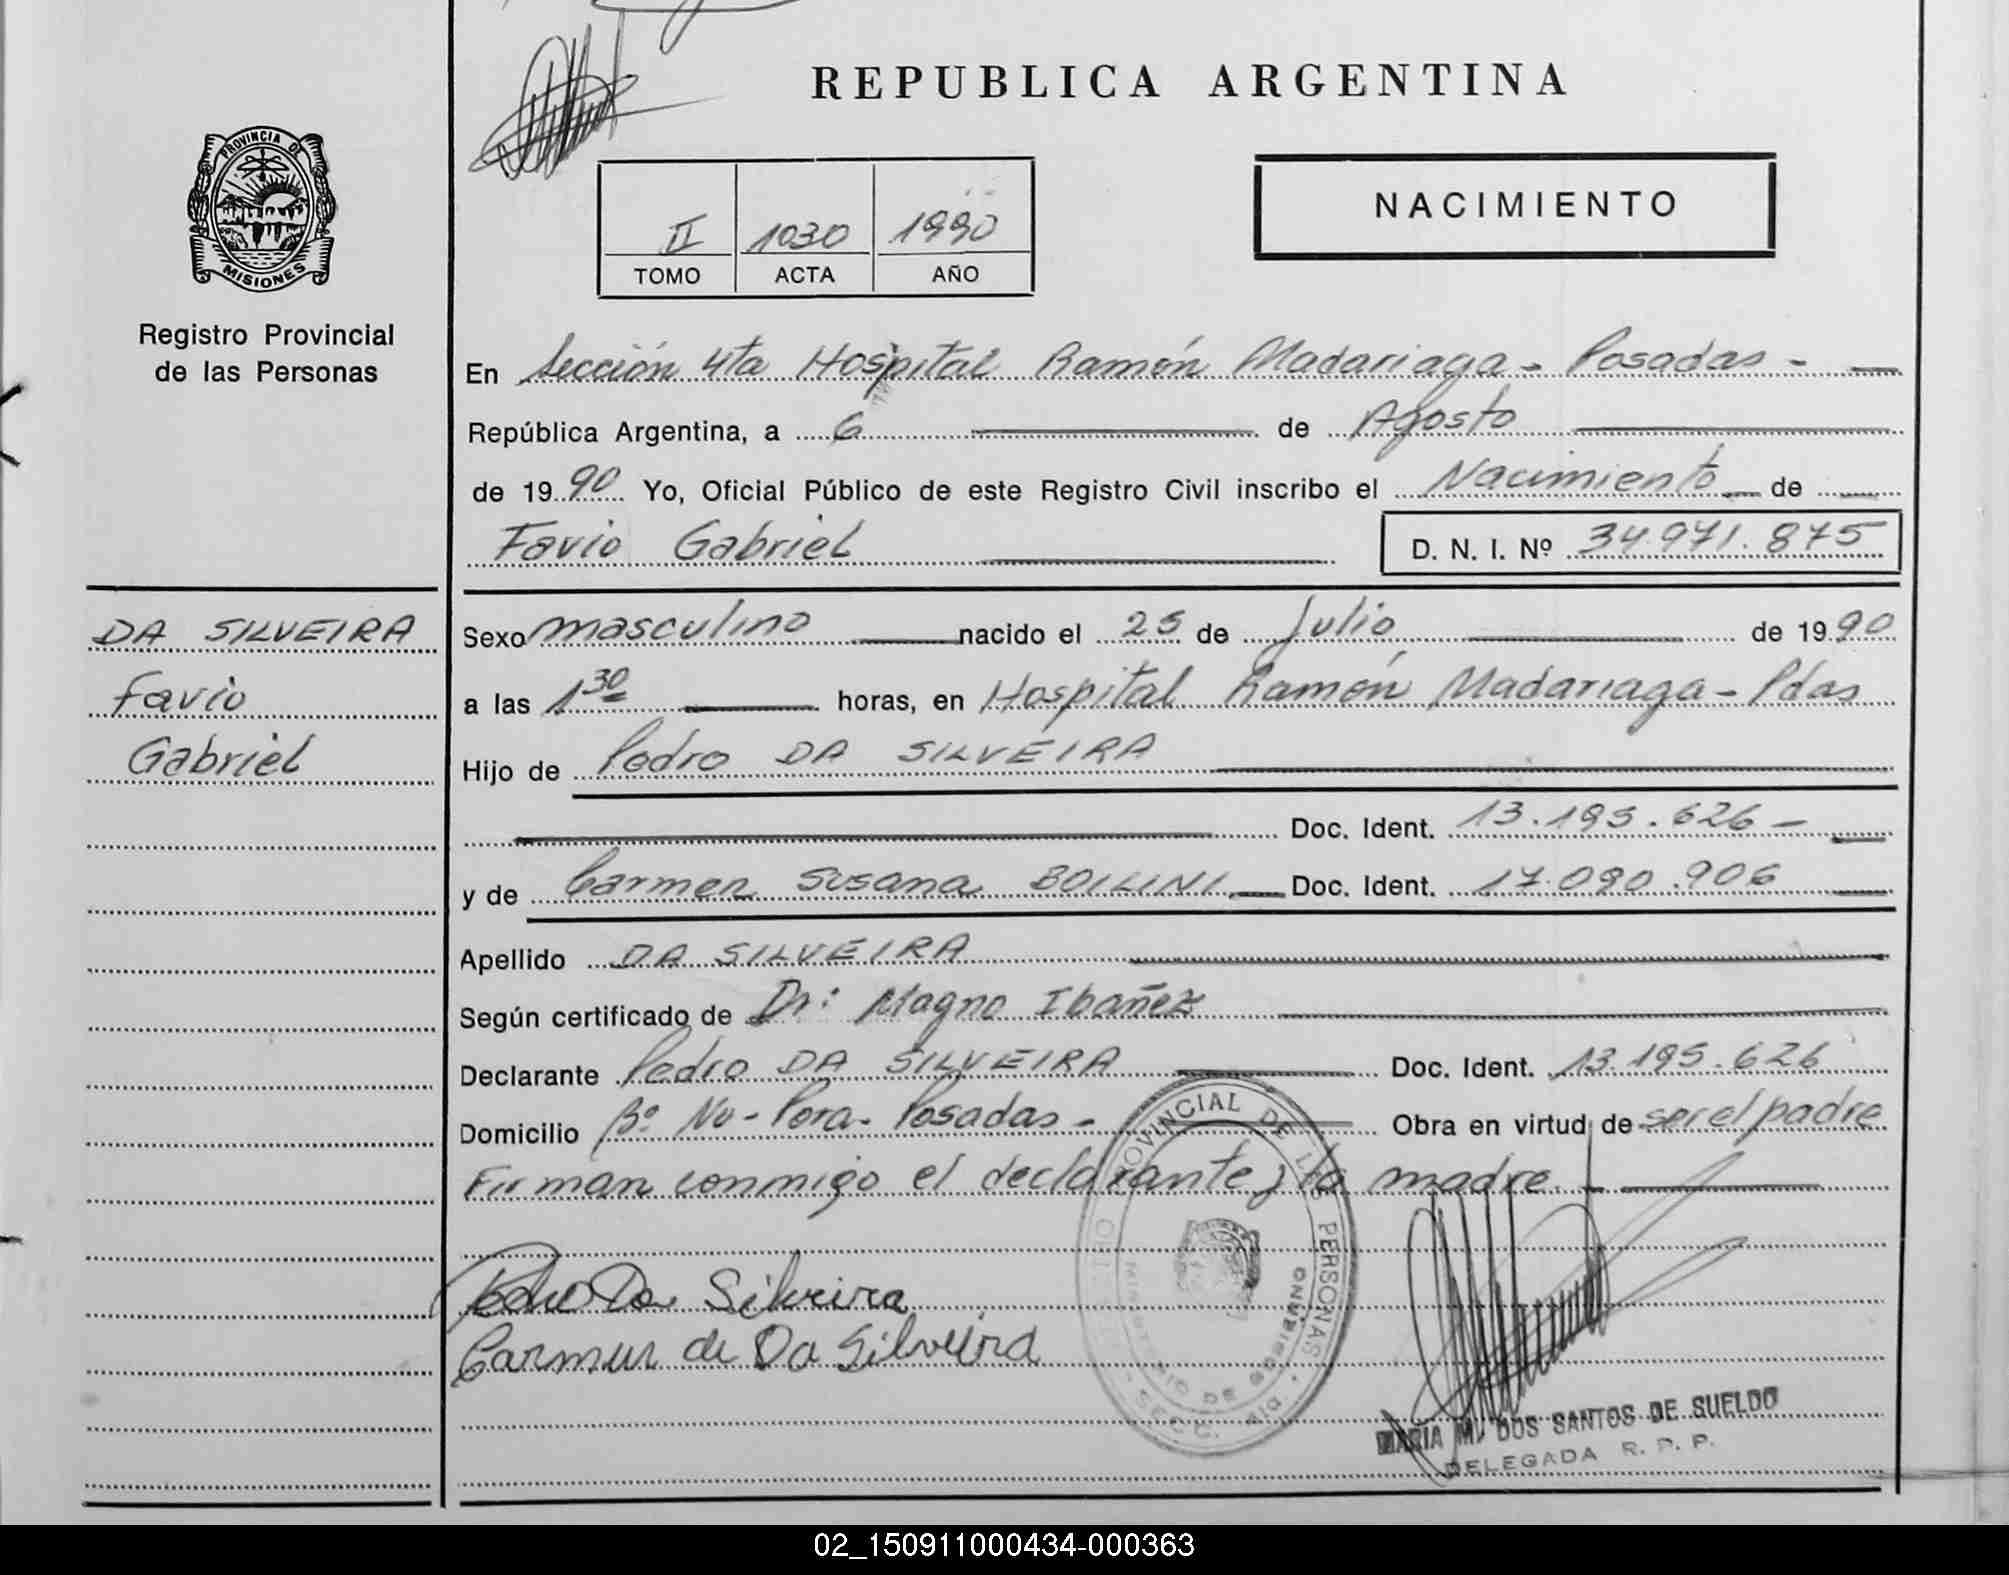 REPUBLICA ARGENTINA
PROVINCIA DE
MISIONES
Registro Provincial
de las Personas
II 1030 1990
TOMO ACTA AÑO
NACIMIENTO
En Sección 4ta Hospital Ramón Madariaga - Posadas -
República Argentina, a 6 de Agosto
de 1990 Yo, Oficial Público de este Registro Civil inscribo el Nacimiento de
Favio Gabriel D. N. I. Nº 34.971.875
DA SILVEIRA
Favio
Gabriel
Sexo masculino nacido el 25 de Julio de 1990
a las 1 30 horas, en Hospital Ramón Madariaga - Pdas
Hijo de Pedro DA SILVEIRA
Doc. Ident. 13.195.626 -
y de Carmen Susana BOILINI Doc. Ident. 17.090.906
Apellido DA SILVEIRA
Según certificado de Dr: Magno Ibañez
Declarante Pedro DA SILVEIRA Doc. Ident. 13.195.626
Domicilio Bº Nu-Pora - Posadas - Obra en virtud de ser el padre
Firman conmigo el declarante y la madre. -
Pedro Da Silveira
Carmen de Da Silveira
PROVINCIAL DE LAS PERSONAS
MINISTERIO DE GOBIERNO
SECC. 4ta.
MARIA M. DOS SANTOS DE SUELDO
DELEGADA R. P. P.
02_150911000434-000363